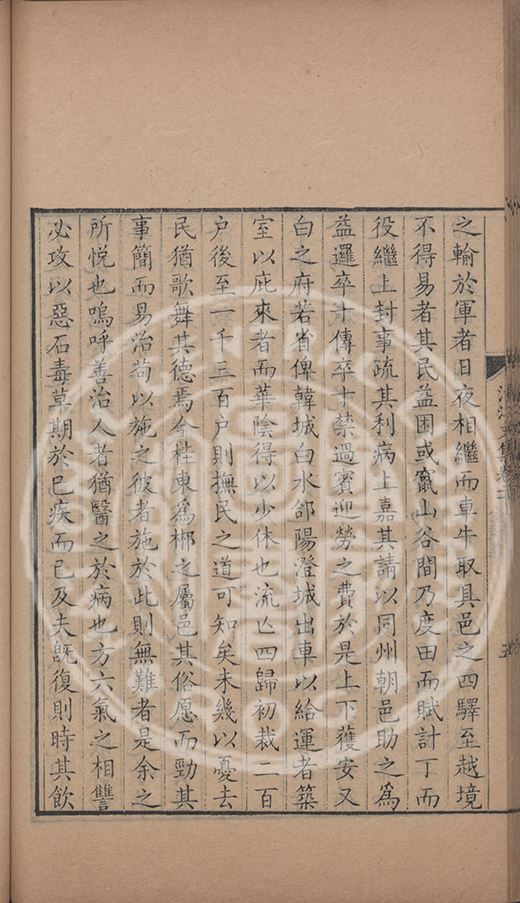 之輸於軍者日夜相繼而車牛取具邑之四驛至越境
不得易者其民益困或竄山谷間乃度田而賦計丁而
役繼上封事疏其利病上嘉其請以同州朝邑助之為
益邏卒十傳卒十禁過賓迎勞之費於是上下獲安又
白之府若省俾韓城白水郃陽澄城出車以給運者築
室以庇來者而華陰得以少休也流亡四歸初裁二百
户後至一千三百户則撫民之道可知矣未幾以憂去
民猶歌舞其德焉今桂東為郴之屬邑其俗愿而勁其
事簡而易治苟以施之彼者施於此則無難者是余之
所悦也嗚呼善治人者猶醫之於病也方六氣之相讐
必攻以惡石毒草期於已疾而已及夫既復則時其飲